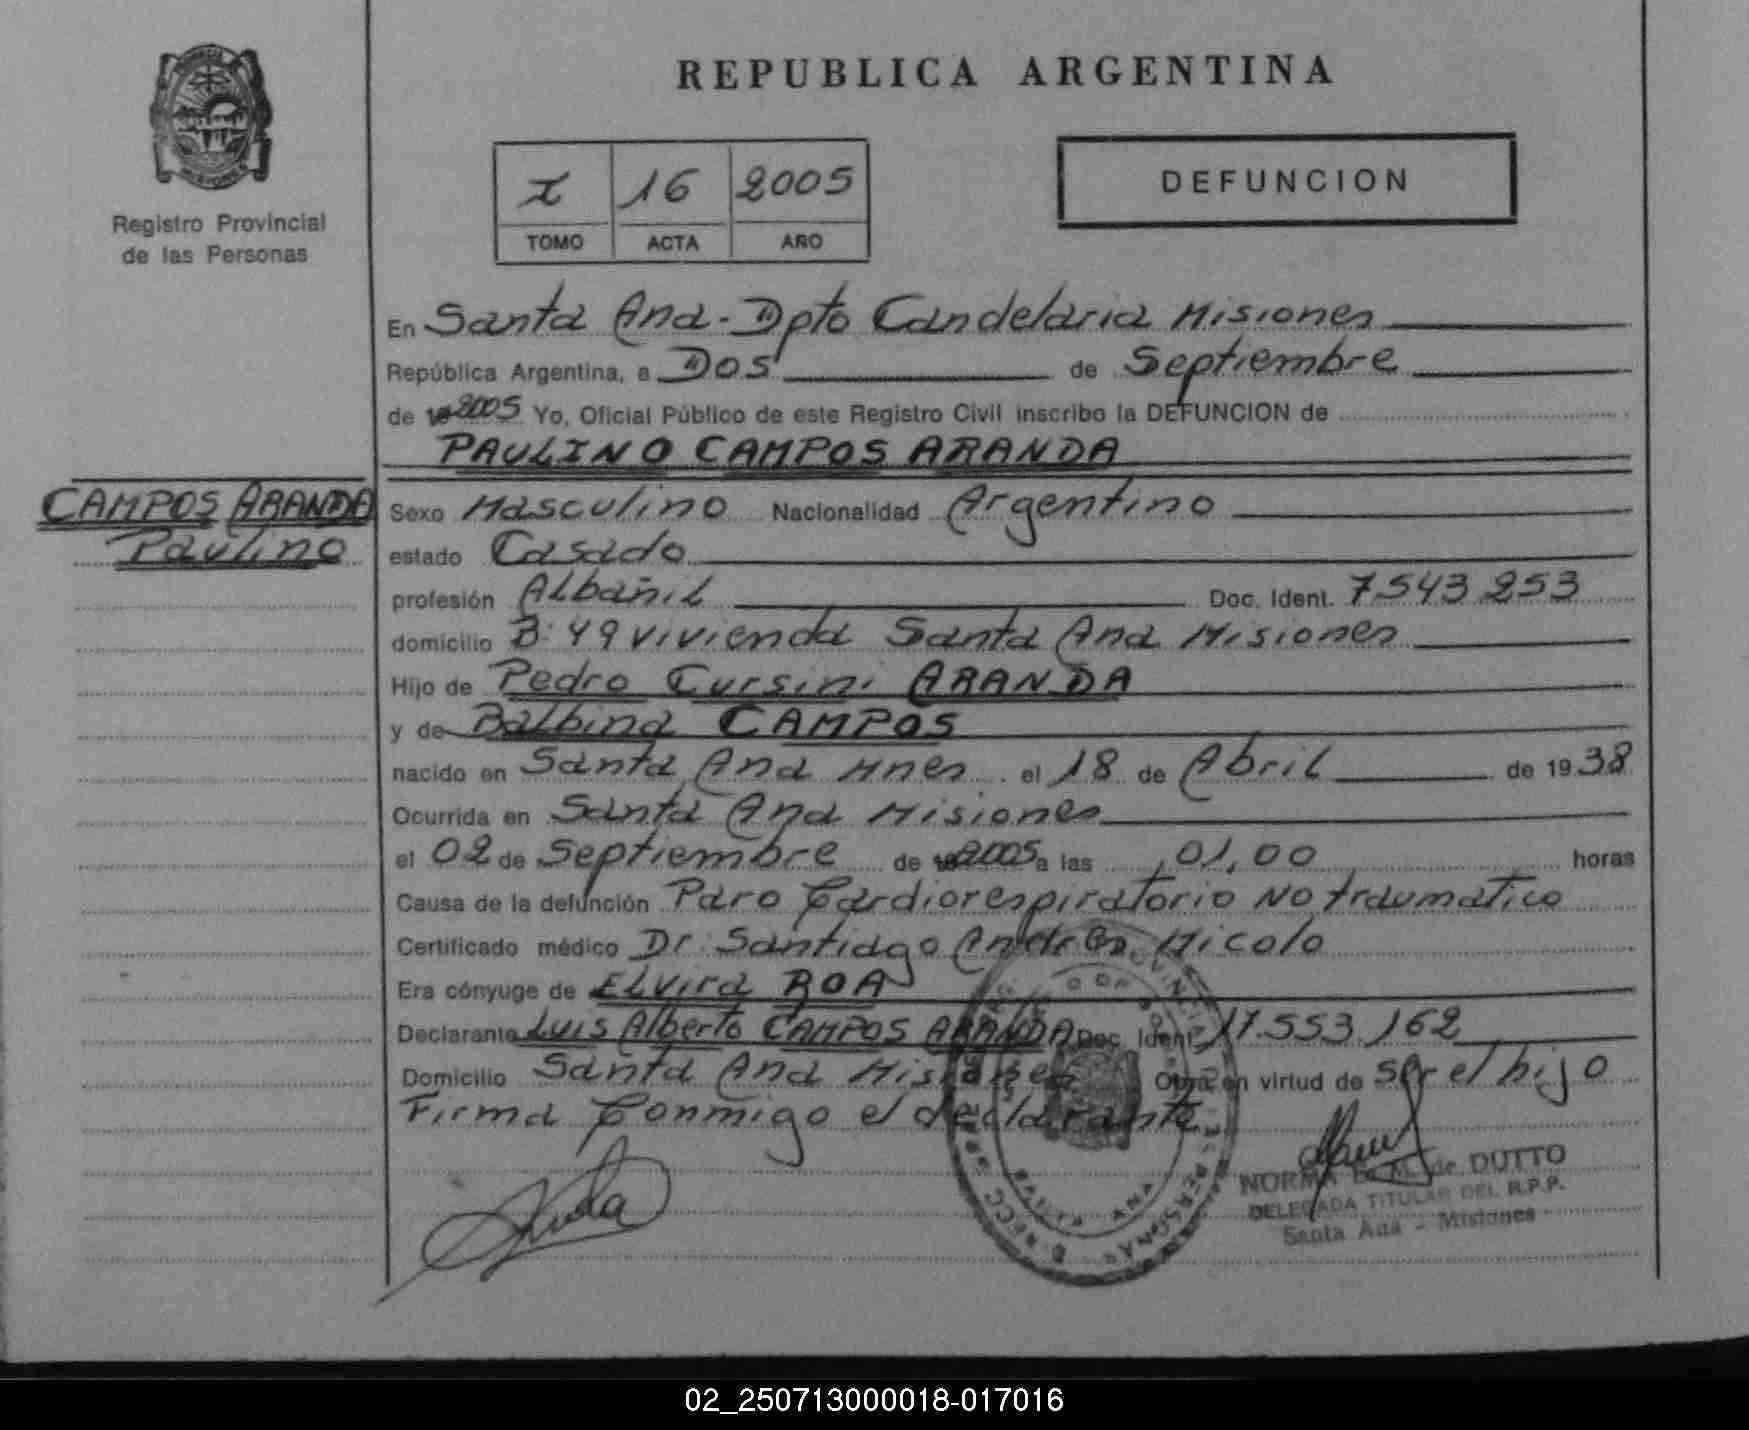 REPUBLICA ARGENTINA
MISIONES
Registro Provincial
de las Personas
I 16 2005
TOMO ACTA AÑO
DEFUNCION
En Santa Ana - Dpto Candelaria Misiones
República Argentina, a Dos de Septiembre
de 2005 Yo, Oficial Público de este Registro Civil inscribo la DEFUNCION de
PAULINO CAMPOS ARANDA
CAMPOS ARANDA
Paulino
Sexo Masculino Nacionalidad Argentino
estado Casado
profesión Albañil Doc. Ident. 7543253
domicilio B: 49 vivienda Santa Ana Misiones
Hijo de Pedro Cursini ARANDA
y de Balbina CAMPOS
nacido en Santa Ana Mnes el 18 de Abril de 1938
Ocurrida en Santa Ana Misiones
el 02 de Septiembre de 2005 a las 01,00 horas
Causa de la defunción Paro Cardiorespiratorio No traumatico
Certificado médico Dr. Santiago Andrés Micolo
Era cónyuge de Elvira ROA
Declarante Luis Alberto CAMPOS ARANDA Doc. Ident. 17.553.162
Domicilio Santa Ana Misiones Obra en virtud de Ser el hijo
Firma Conmigo el declarante
NORMA de DUTTO
DELEGADA TITULAR DEL R.P.P.
Santa Ana - Misiones
02_250713000018-017016